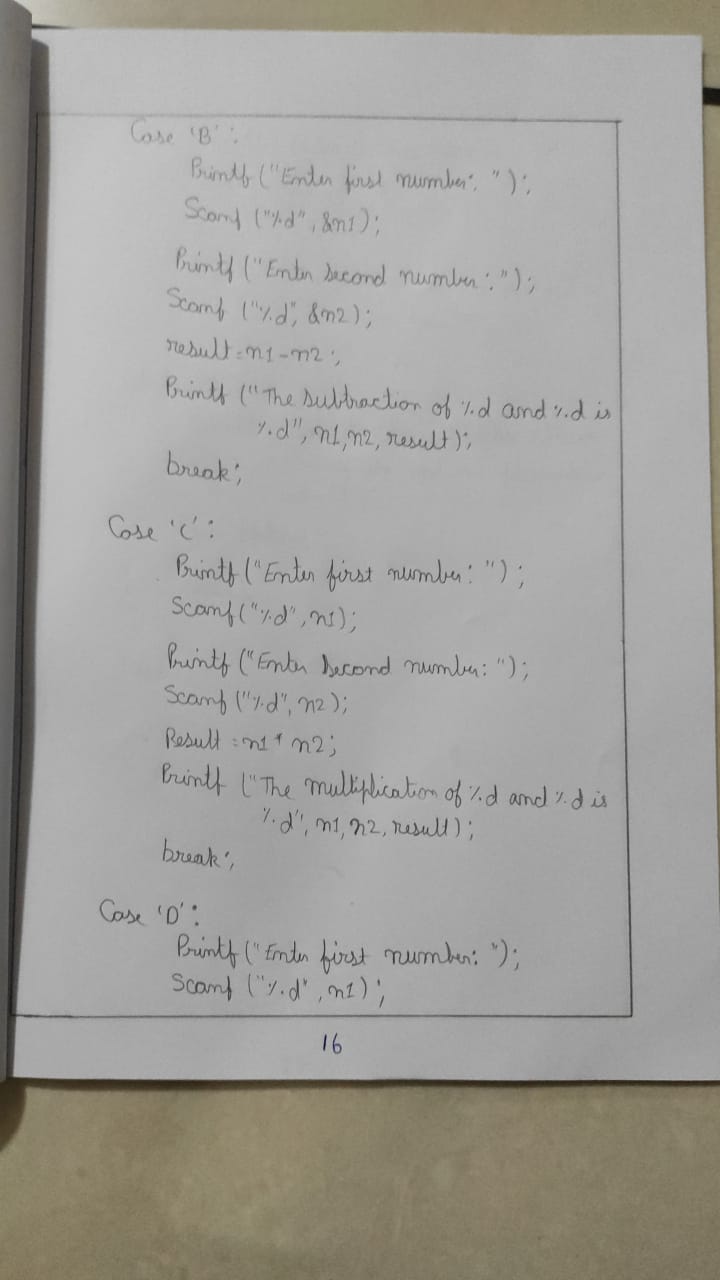 Case 'B':
Printf ("Enter first number: ");
Scanf ("%d", &n1);
Printf ("Enter second number: ");
Scanf ("%d", &n2);
result = n1 - n2;
Printf ("The subtraction of %d and %d is
%d", n1, n2, result);
break;
Case 'C':
Printf ("Enter first number: ");
Scanf ("%d", n1);
Printf ("Enter second number: ");
Scanf ("%d", n2);
Result = n1 * n2;
Printf ("The multiplication of %d and %d is
%d", n1, n2, result);
break;
Case 'D':
Printf ("Enter first number: ");
Scanf ("%d", n1);
16